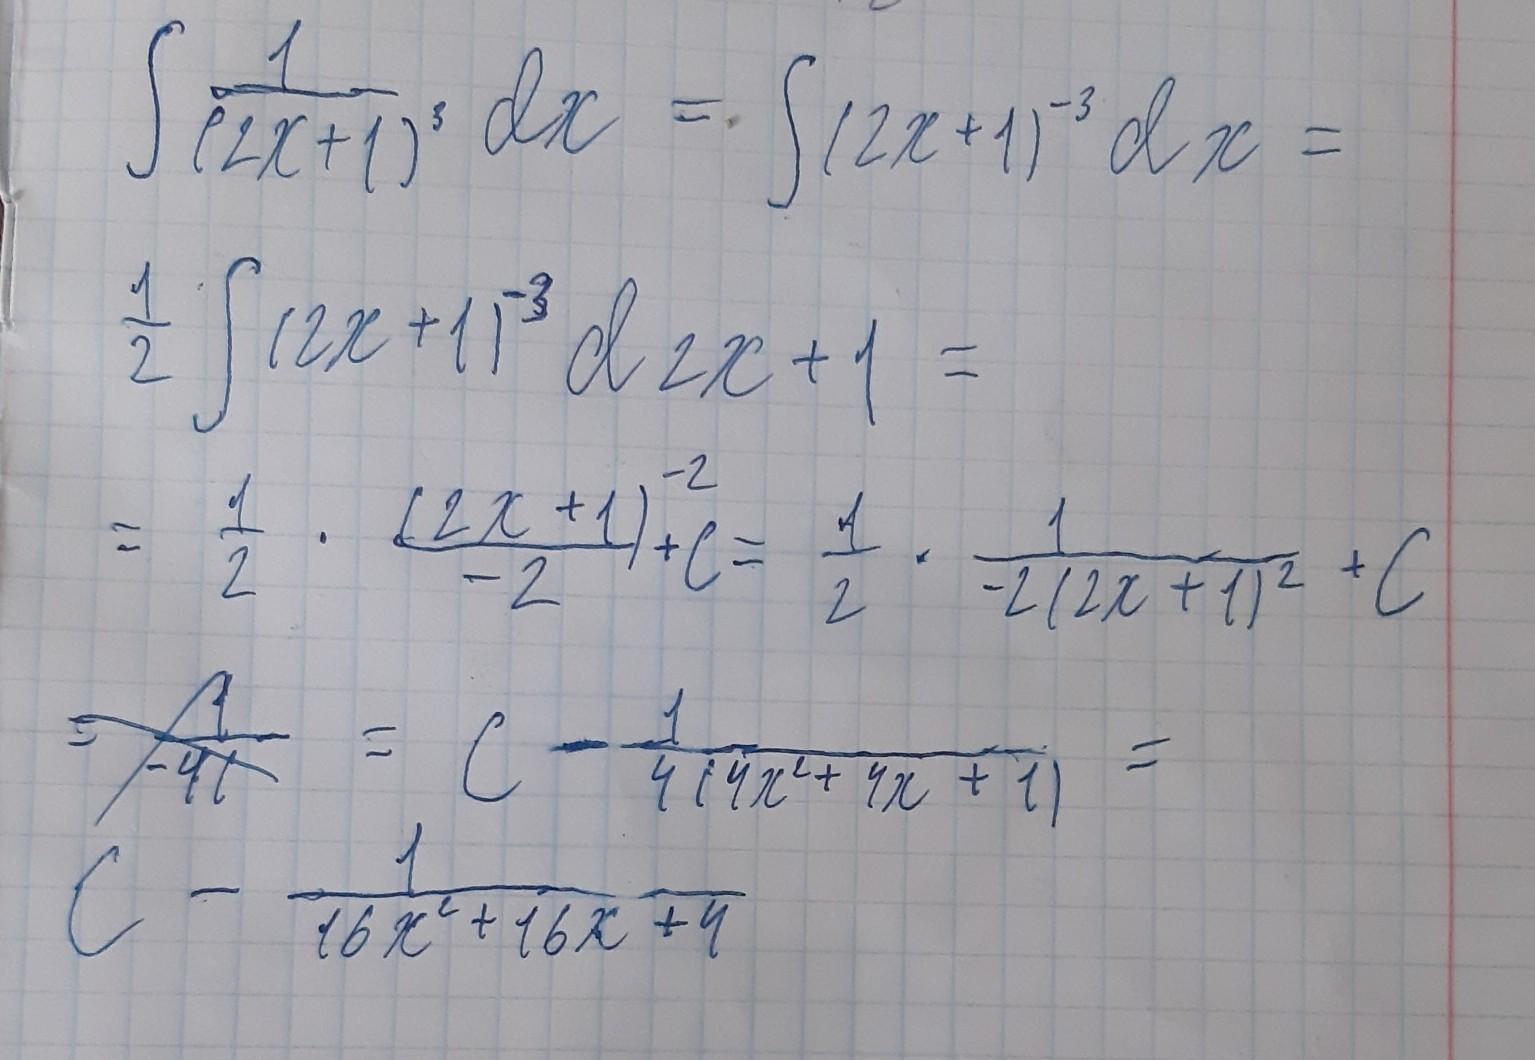 ∫ 1/(2x+1)³ dx = ∫(2x+1)⁻³ dx =
1/2 ∫(2x+1)⁻³ d 2x+1 =
= 1/2 · (2x+1)⁻²/-2 + C = 1/2 · 1/-2(2x+1)² + C
= 1/-4( = C - 1/4(4x²+4x+1) =
C - 1/16x²+16x+4